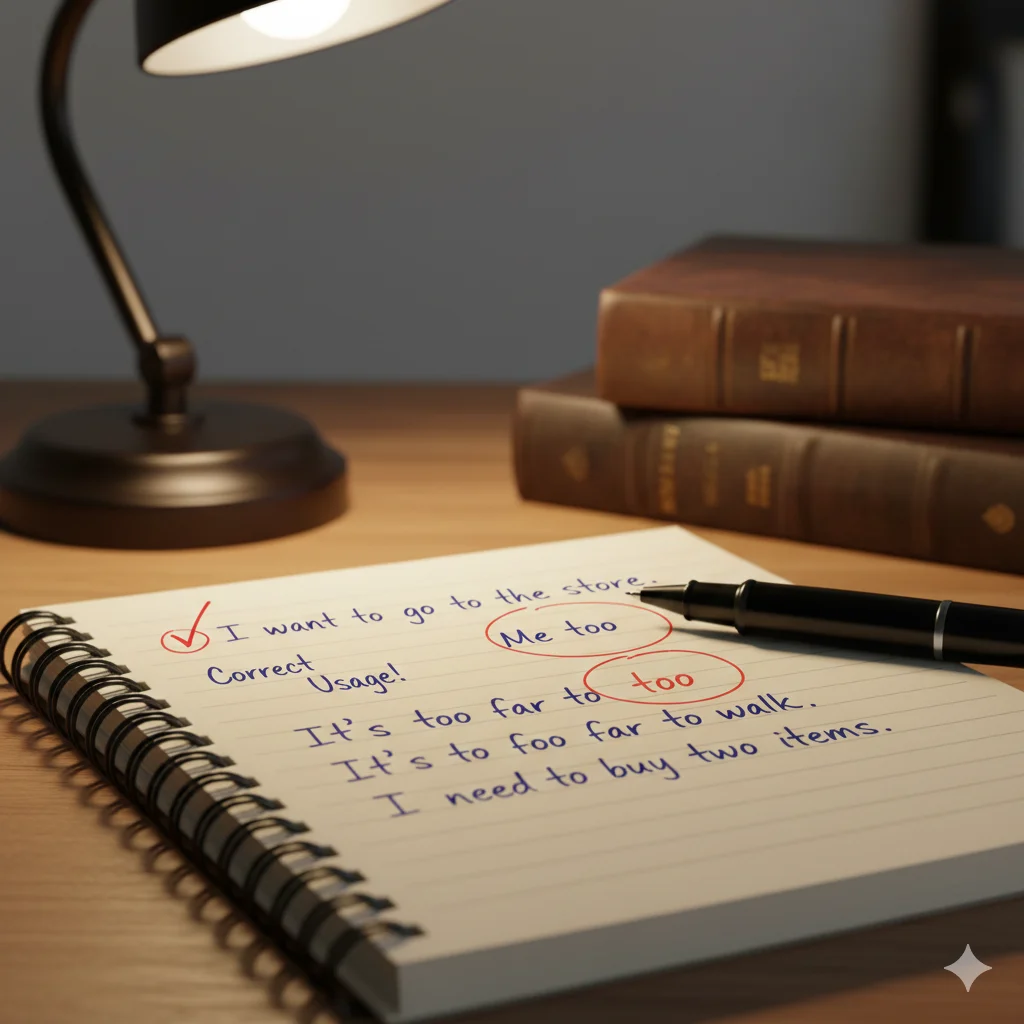 I want to go to the store.
Me too
Correct
Usage!
It's too far to too
It's to foo far to walk.
I need to buy two items.